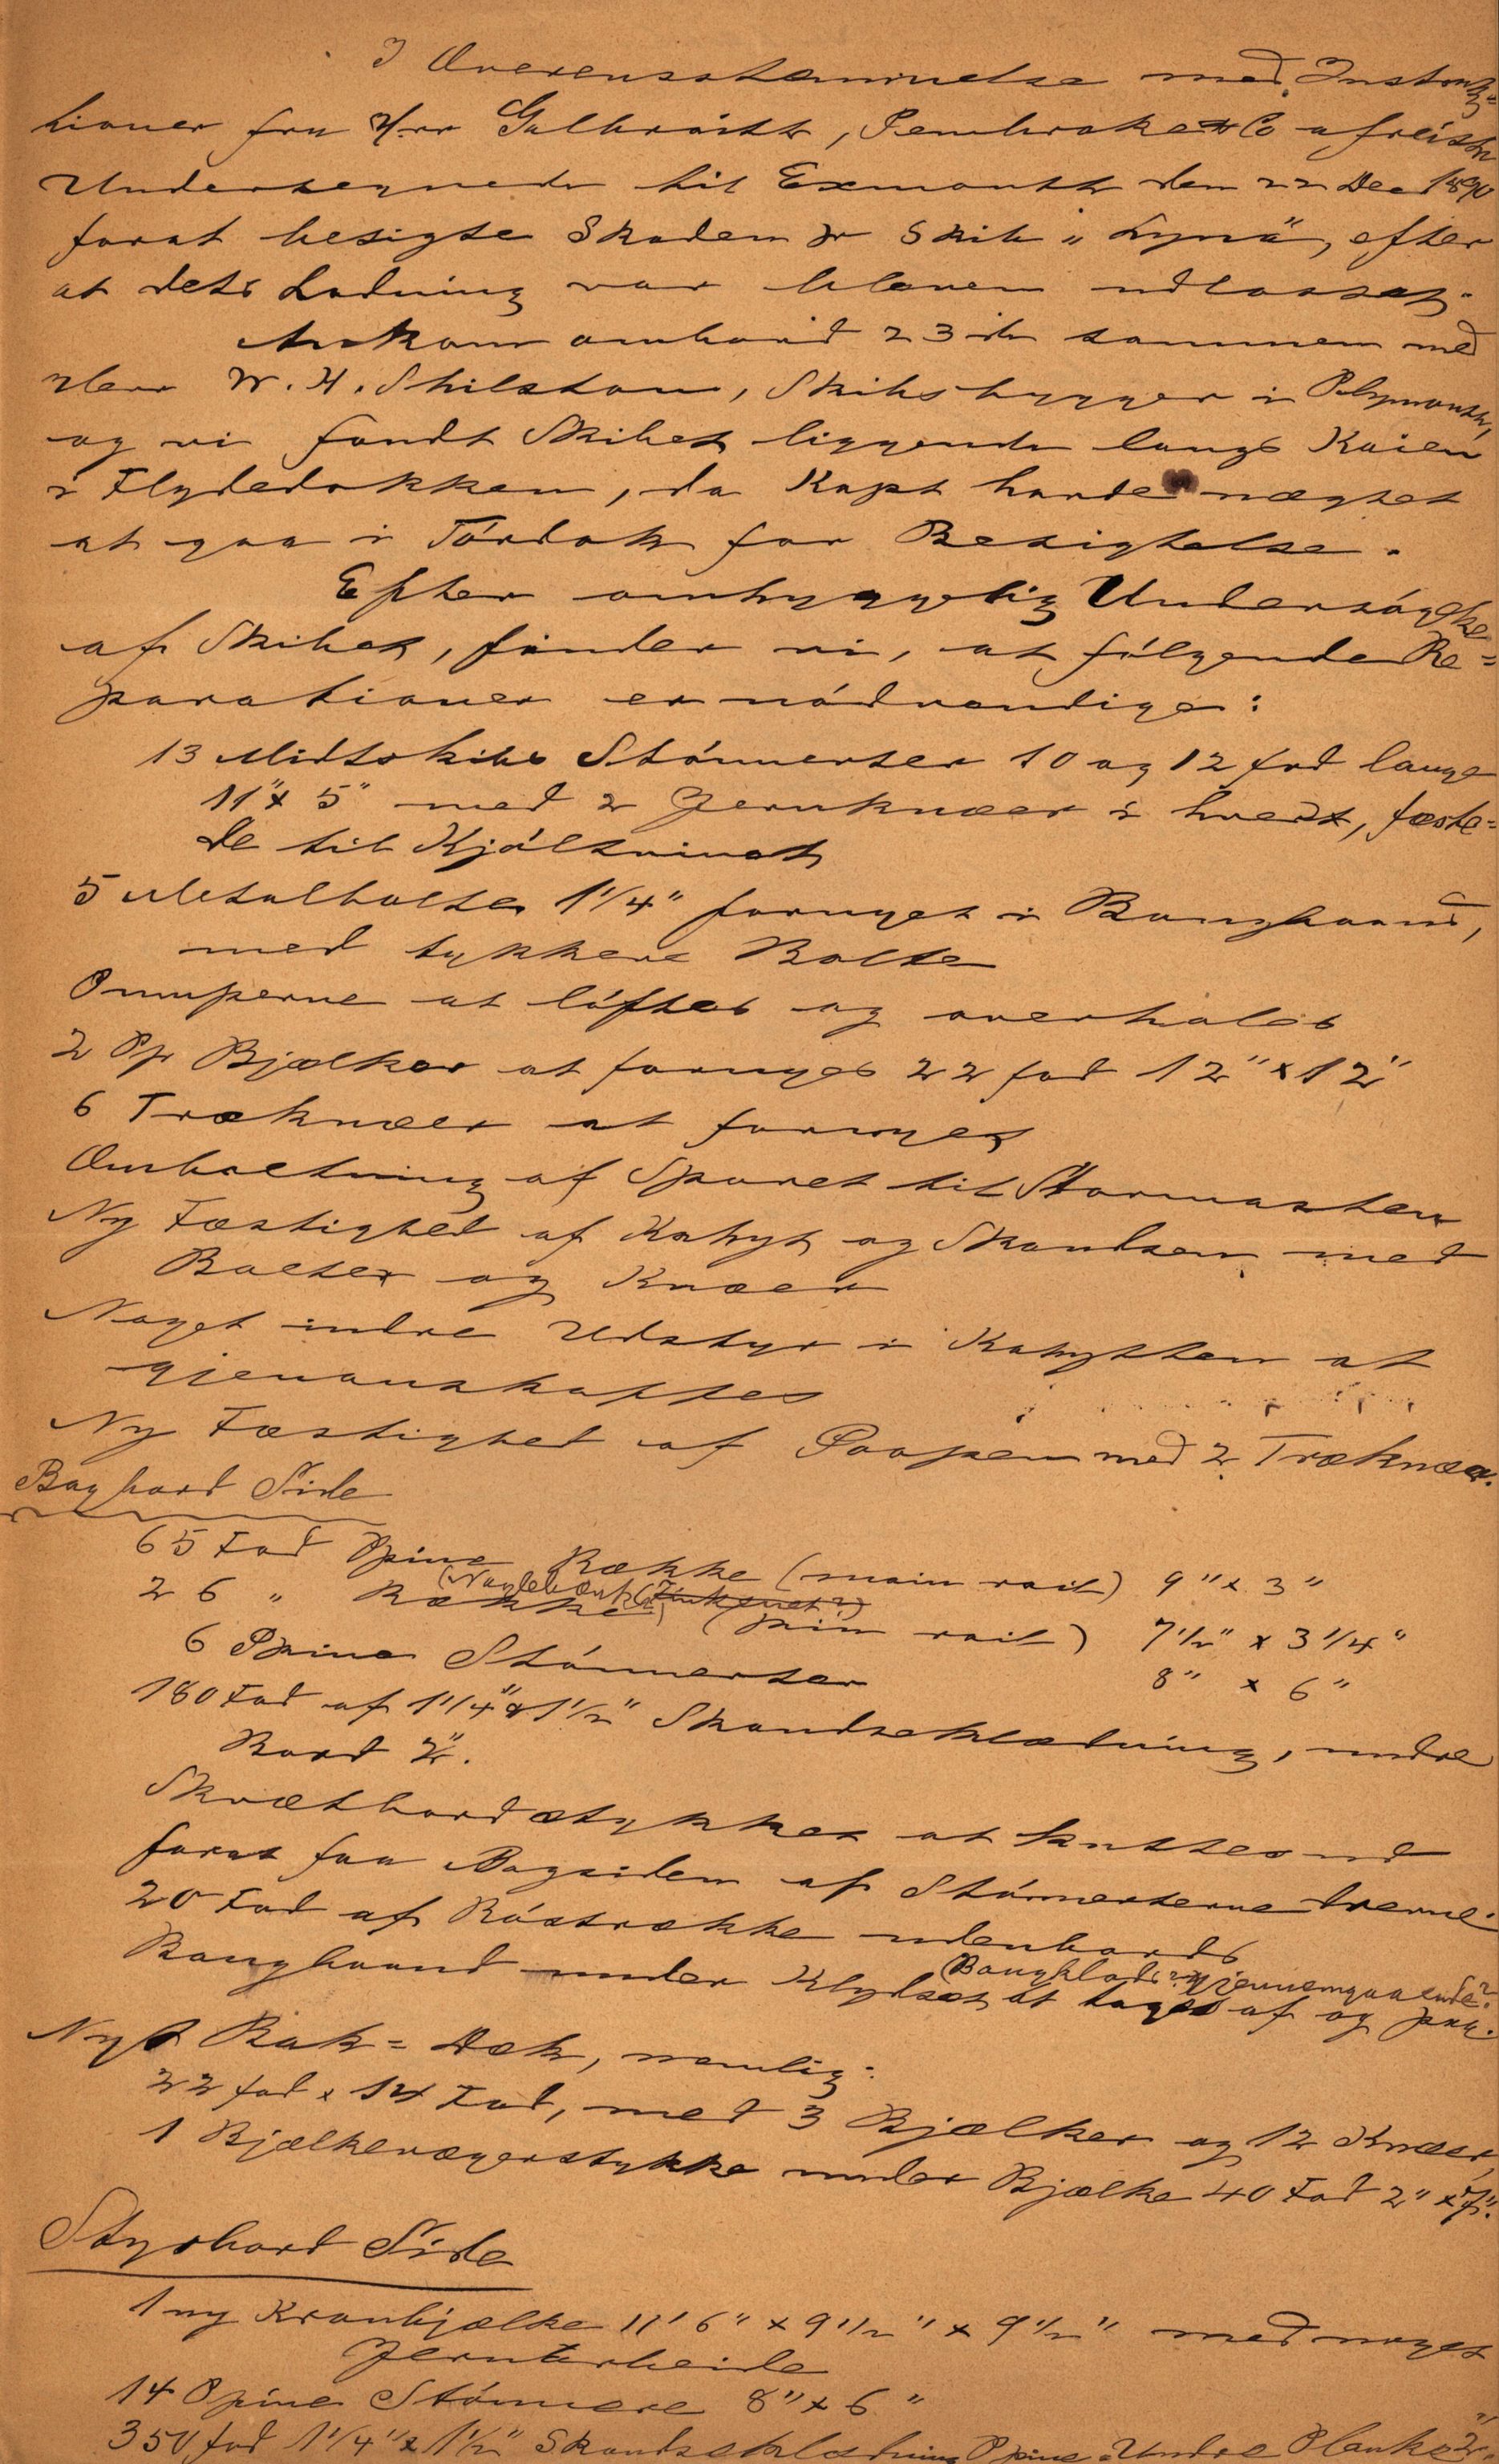 I Overensstemmelse med Instruk=
tioner fra Hrr Galbraith, Pembroke & Co afreiste
Undertegnede til Exmouth den 22 Dec 1890
forat besigte Skaden pr Skib "Lyna", efter
at dets Ladning var bleven udlosset.
Ankom ombord 23de sammen med
Herr W. H. Shilston, Skibsbygger i Plymouth,
og vi fandt Skibet liggende langs Kaien
i Flydedokken, da Kapt havde nægtet
at gaa i Tördok for Besigtelse.
Efter omhyggelig Undersögelse
af Skibet, finder vi, at fölgende Re=
parationer er nödvendige:
13 Midtskibs Stönnerter 10 og 12 fod lange
11" x 5" med 2 Jernknæer i hvert, fæste=
de til Kjölsvinet
5 Metalbolter 1 1/4" fornyet i Bougbaand,
med tykkere Bolte
Pumperne at löftes og overhales
2 Pp Bjælker at fornyes 22 fod 12" x 12"
6 Træknæer at fornyes
Ombolting af Sporet til Stormasten
Ny Fæstighed af Kahyt og Skandsen med
Bolter og Knæer
Noget indre Udstyr i Kahytten at
gjenanskaffes
Ny Fæstighet af Poopen med 2 Træknær.
Bagbord Side
65 Fod Ppine Række (main rail) 9" x 3"
(Naglebænk)
26 " Række (pin rail) 7 1/2" x 3 1/4"
6 Ppine Stönnerter 8" x 6"
180 Fod af 1 1/4" & 1 1/2" Skandseklædning, undre
Bord 2".
Skvætbordstykket at kuttes ud
forat faa Bagsiden af Stönnerterne drevne
20 Fod af Röstrække udenbords
(Bougblad? gjennemgaaende?
Bougbaand under Klydset at tages af og paa.
Nyt Bak=Dæk, nemlig:
22 fod x 14 Fod, med 3 Bjælker og 12 Knæer,
1 Bjælkevægerstykke under Bjælke 40 Fod 2" x 7".
Styrbord Side
1 ny Kranbjælke 11' 6" x 9 1/2" x 9 1/2" med noget
Jernarbeide
14 Ppine Stönnere 8" x 6"
350 fod 1 1/4" & 1 1/2" Skandseklædning Ppine. Undre Planke 2"